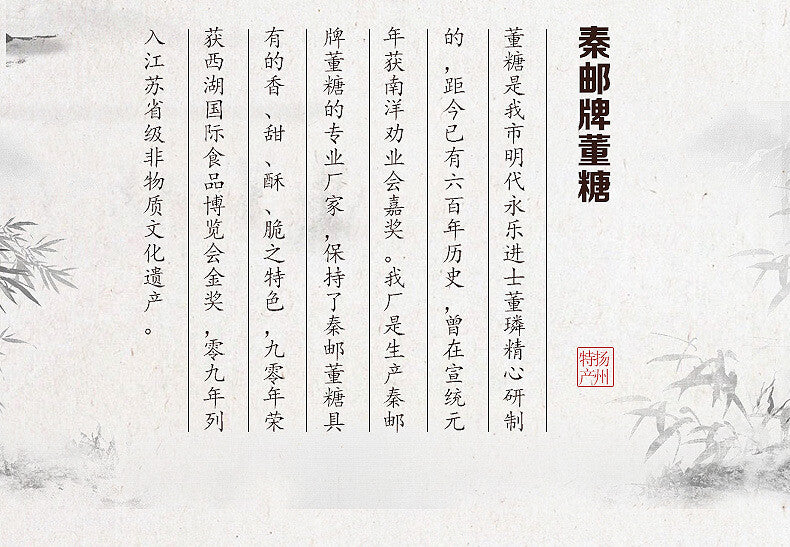 秦邮牌董糖
扬州
特产
董糖是我市明代永乐进士董璘精心研制
的，距今已有六百年历史，曾在宣统元
年获南洋劝业会嘉奖。我厂是生产秦邮
牌董糖的专业厂家，保持了秦邮董糖具
有的香、甜、酥、脆之特色，九零年荣
获西湖国际食品博览会金奖，零九年列
入江苏省级非物质文化遗产。